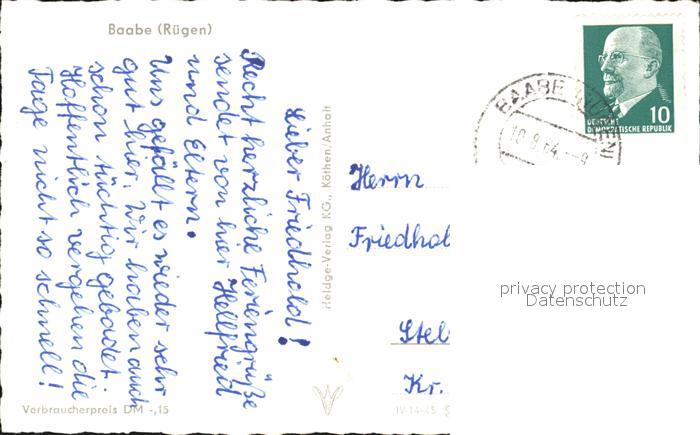 Baabe (Rügen)
Lieber Friedhold!
Recht herzliche Feriengrüße
sendet von hier Hellfried
und Eltern.
Uns gefällt es wieder sehr
gut hier. Wir haben auch
schon tüchtig gebadet.
Hoffentlich vergehen die
Tage nicht so schnell!
Verbraucherpreis DM -,15
Heldge-Verlag KG., Köthen/Anhalt
DEUTSCHE
DEMOKRATISCHE REPUBLIK
10
BAABE (RÜGEN)
18.8.64.-9
Herrn
Friedhol
Stel
Kr.
IV-14-45
privacy protection
Datenschutz